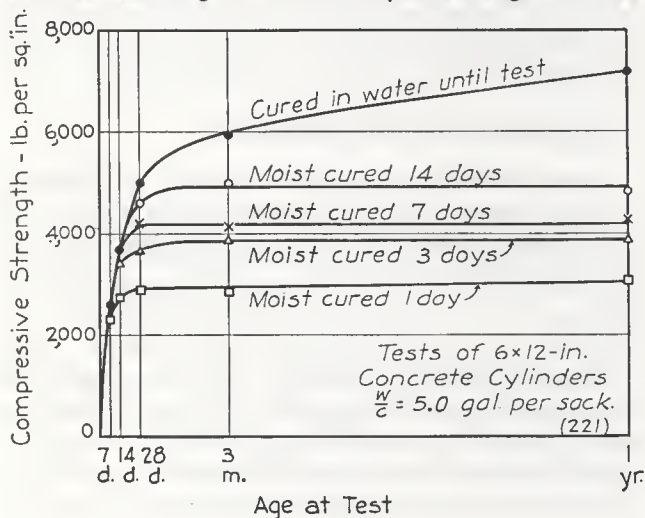 Compressive Strength - lb. per sq."in.
8,000
6000
,4000
2,000
0
Cured in water until test
Moist cured 14 days
Moist cured 7 days
Moist cured 3 days
Moist cured 1 day
Tests of 6×12-in.
Concrete Cylinders
W/C = 5.0 gal. per sack.
(221)
7 14 28 3 1
d. d. d. m. yr.
Age at Test